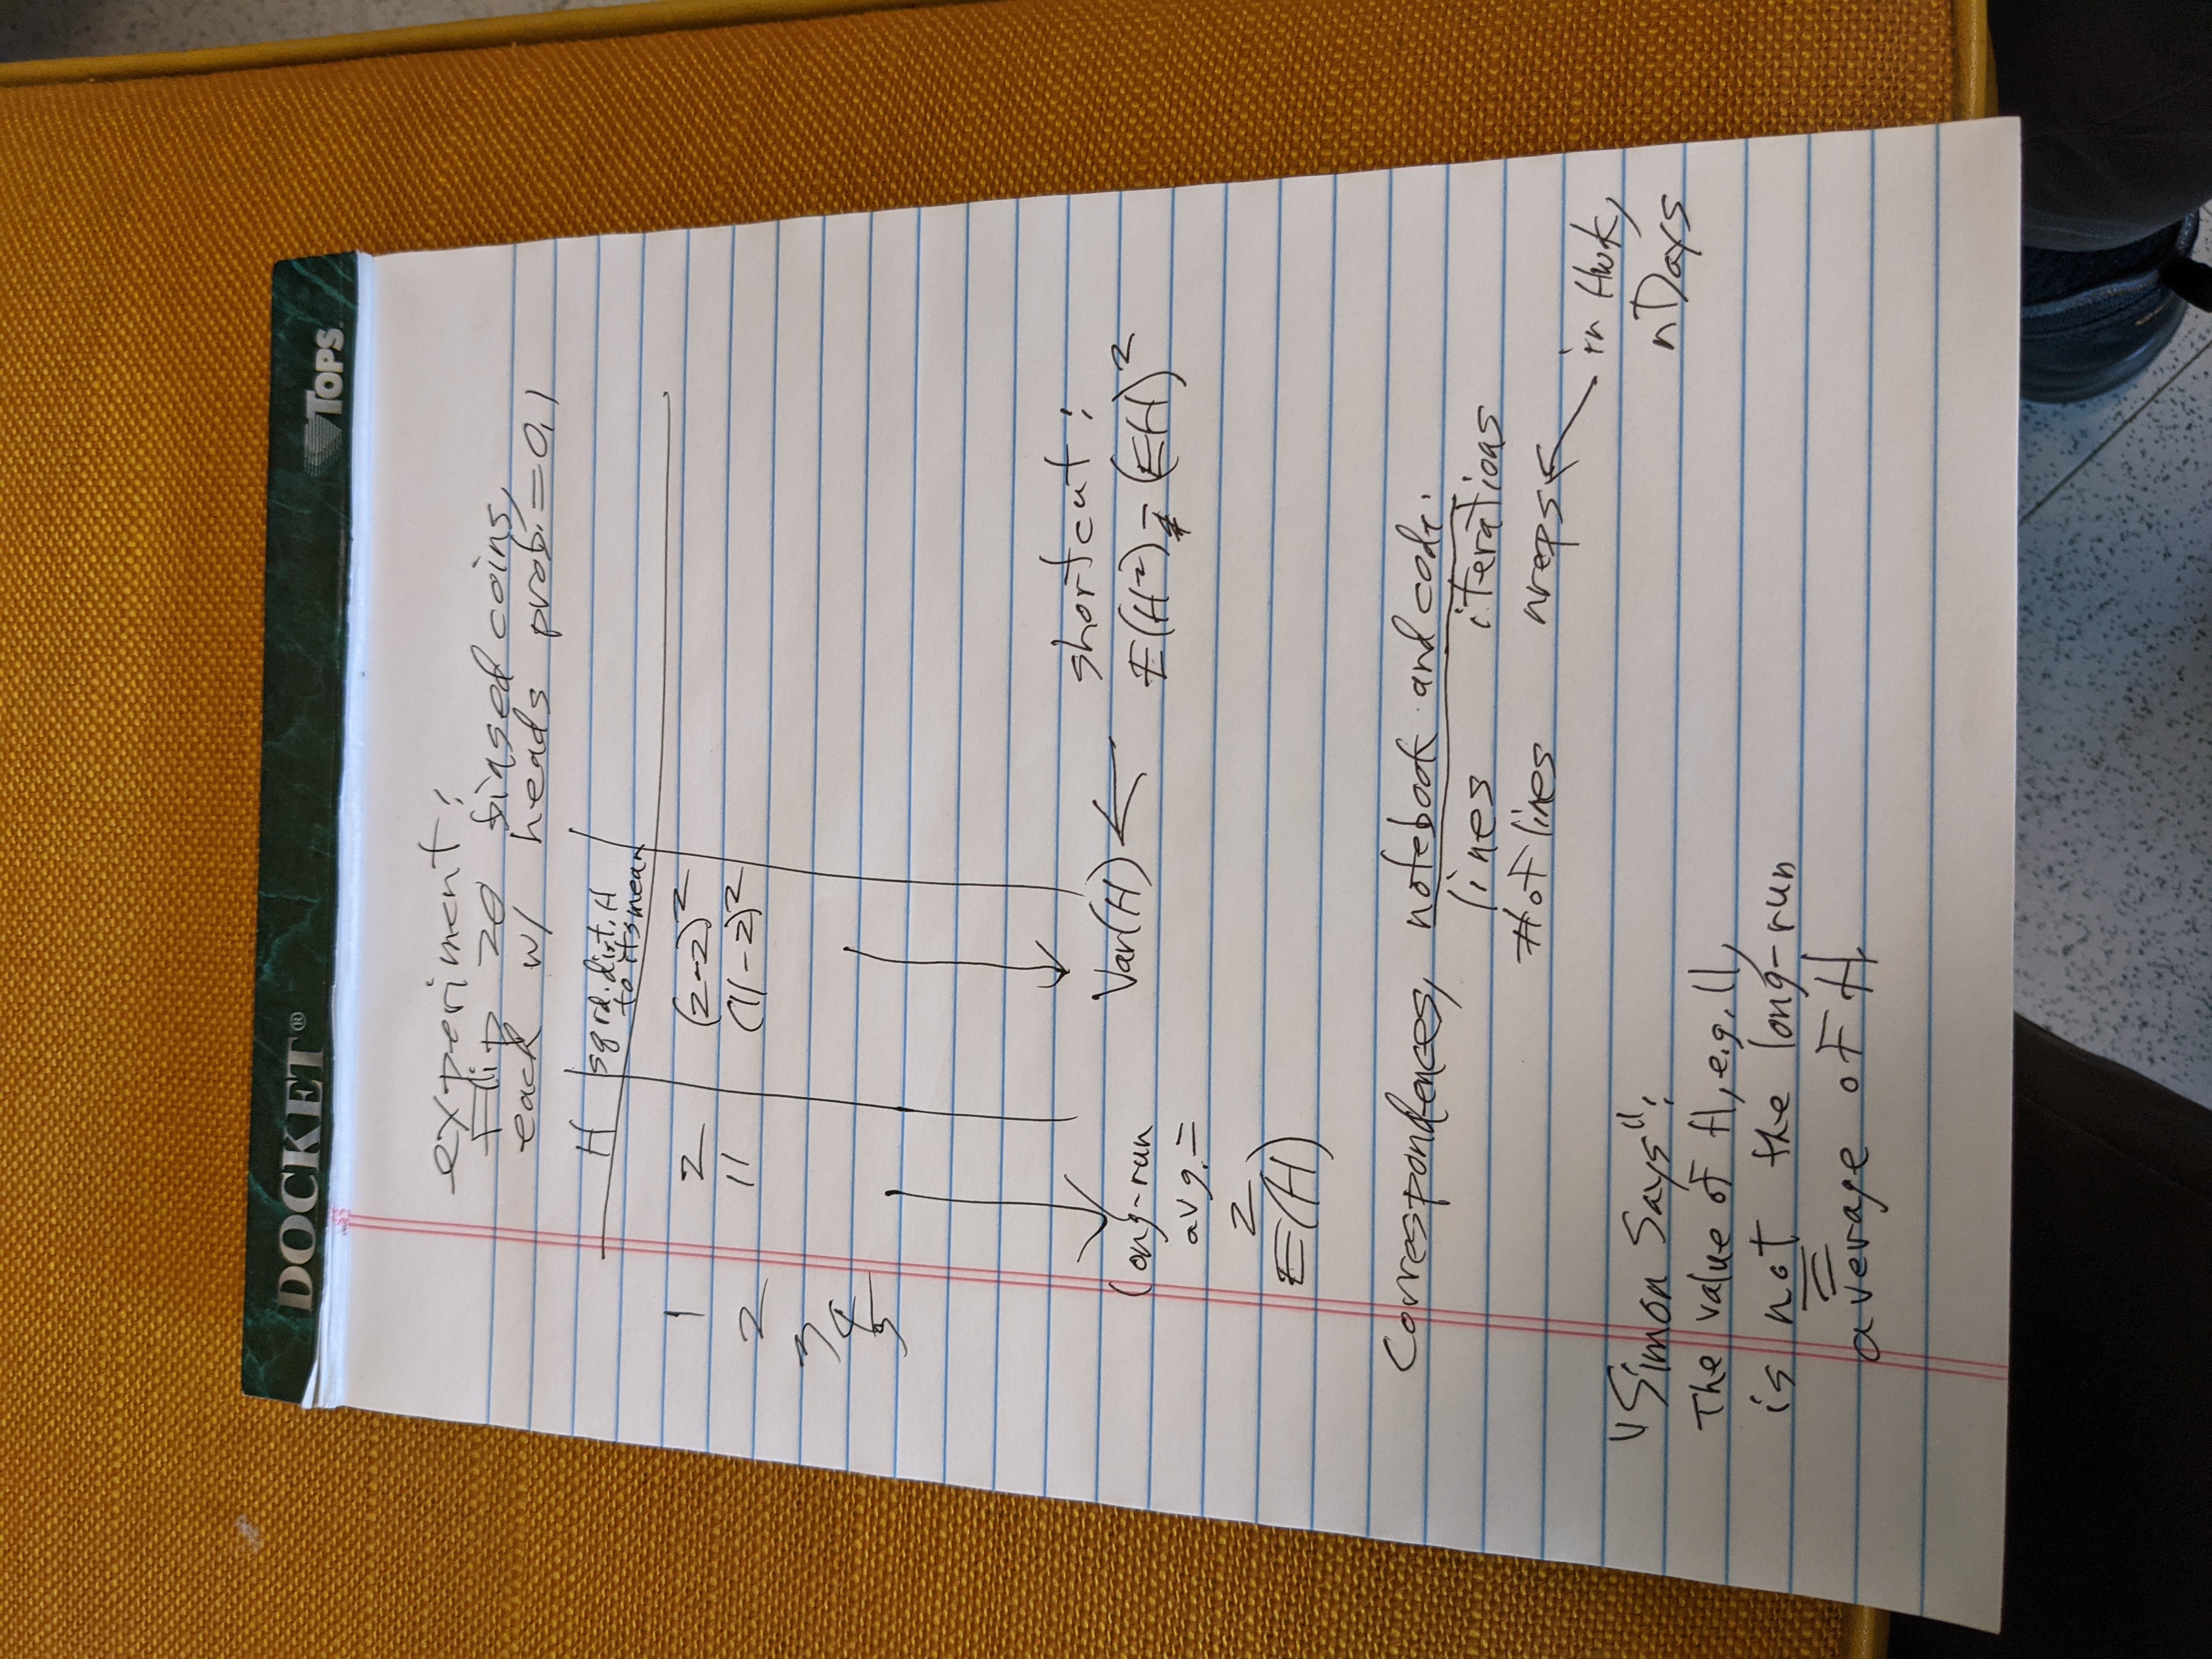 DOCKET®
TOPS
experiment:
Flip 20 biased coins,
each w/ heads prob. = 0.1
H sqrd. dist. H
to its mean
1 2 (2-2)²
2 11 (11-2)²
3
4
5
long-run
avg. =
2
E(H)
Var(H) ← shortcut:
E(H²) - (EH)²
Correspondences, notebook and code:
lines iterations
# of lines nreps
in Hwk,
nDays
"Simon Says":
The value of H, e.g. 11,
is not the long-run
average of H